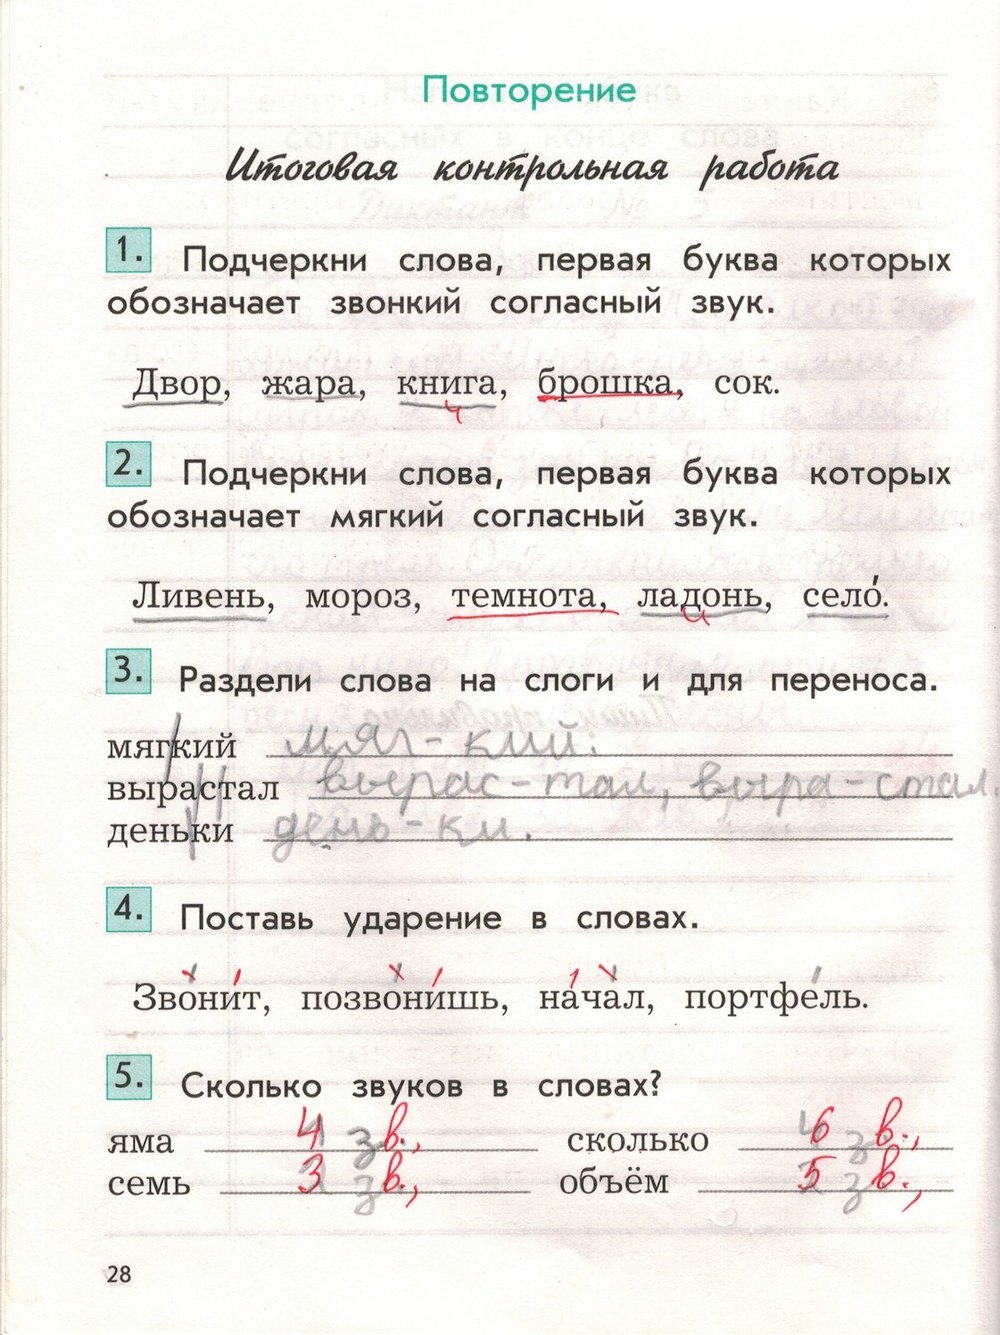 Повторение
Итоговая контрольная работа
1. Подчеркни слова, первая буква которых
обозначает звонкий согласный звук.
Двор, жара, книга, брошка, сок.
2. Подчеркни слова, первая буква которых
обозначает мягкий согласный звук.
Ливень, мороз, темнота, ладонь, село.
3. Раздели слова на слоги и для переноса.
мягкий мяг-кий.
вырастал вырас-тал, выра-стал.
деньки день-ки.
4. Поставь ударение в словах.
Звонит, позвонишь, начал, портфель.
5. Сколько звуков в словах?
яма 4 зв., сколько 6 зв.,
семь 3 зв., объём 5 зв.,
28